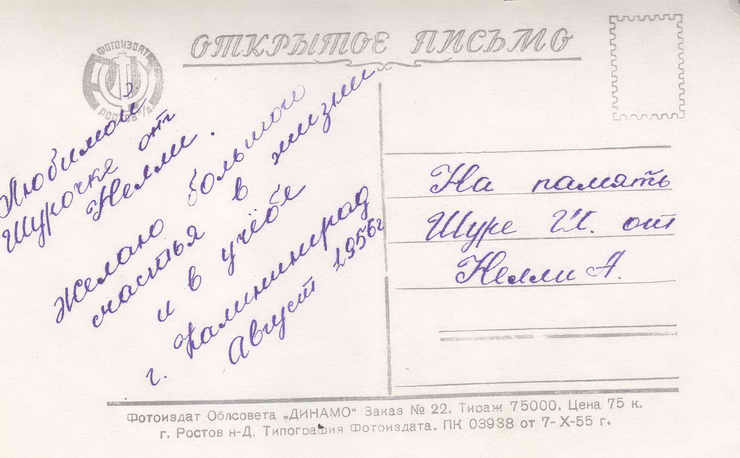 ОТКРЫТОЕ ПИСЬМО
ФОТОИЗДАТ
РОСТОВ н/Д
Любимой
Шурочке от
Нелли.
Желаю большого
счастья в жизни
и в учёбе
г. Калининград
Август 1956г
На память
Шуре И. от
Нелли А.
Фотоиздат Облсовета „ДИНАМО" Заказ № 22. Тираж 75000. Цена 75 к.
г. Ростов н-Д. Типография Фотоиздата. ПК 03938 от 7-X-55 г.